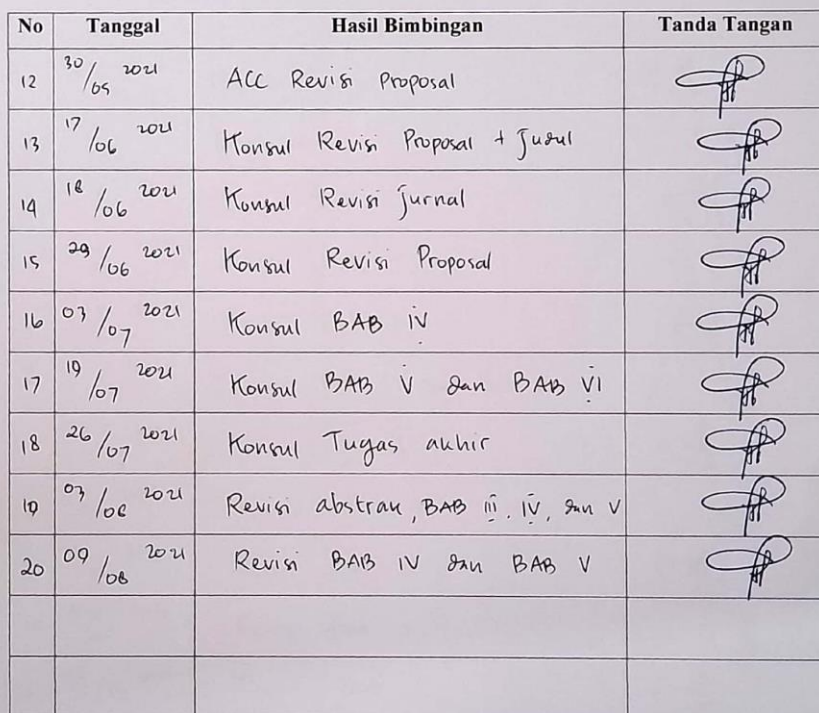 No Tanggal Hasil Bimbingan Tanda Tangan
12 30/05 2021 ACC Revisi Proposal
13 17/06 2021 Konsul Revisi Proposal + Judul
14 18/06 2021 Konsul Revisi Jurnal
15 29/06 2021 Konsul Revisi Proposal
16 03/07 2021 Konsul BAB IV
17 19/07 2021 Konsul BAB V dan BAB VI
18 26/07 2021 Konsul Tugas akhir
19 03/08 2021 Revisi abstrak, BAB III, IV, dan V
20 09/08 2021 Revisi BAB IV dan BAB V